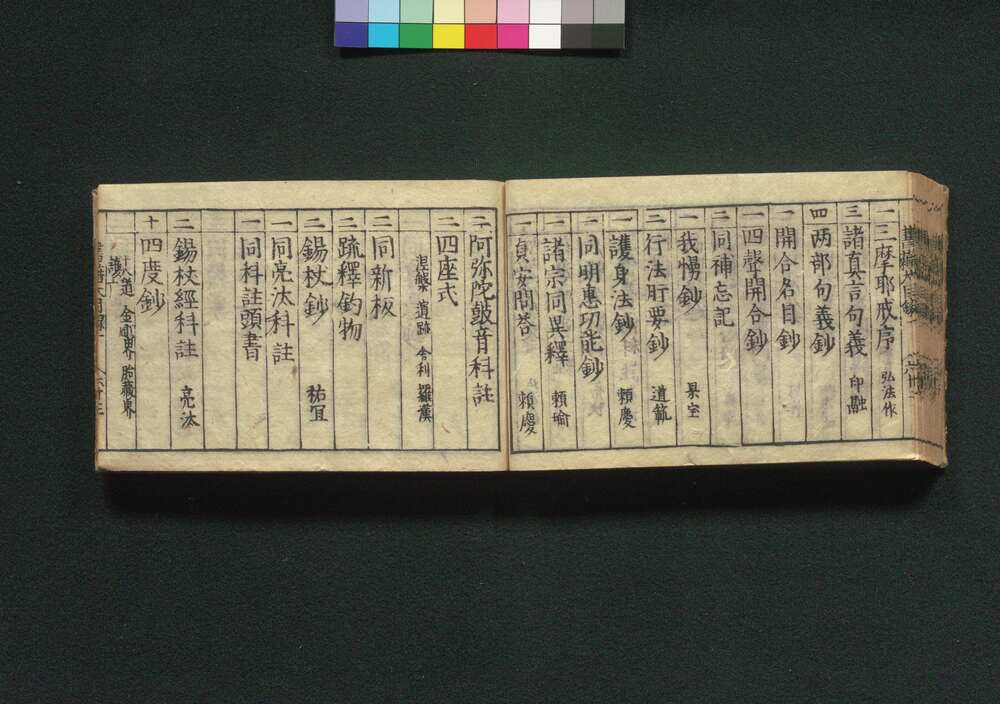 一 三摩耶戒序 弘法作
三 諸真言句義 印融
四 两部句義鈔
一 開合名目鈔
一 四聲開合鈔
二 同補忘記
一 我慢鈔 果宝
二 行法肝要鈔 道範
一 護身法鈔 頼慶
二 同明惠功能鈔
二 諸宗同異釋 頼瑜
一 貞安問答 頼慶
二 阿弥陀皷音科註
二 四座式
涅槃 遺跡 舎利 羅漢
三 同新板
二 疏釋鈎物
二 錫杖鈔 祐宜
一 同亮汰科註
一 同科註頭書
二 錫杖經科註 亮汰
十 四度鈔
十八道 金剛界 胎藏界
護